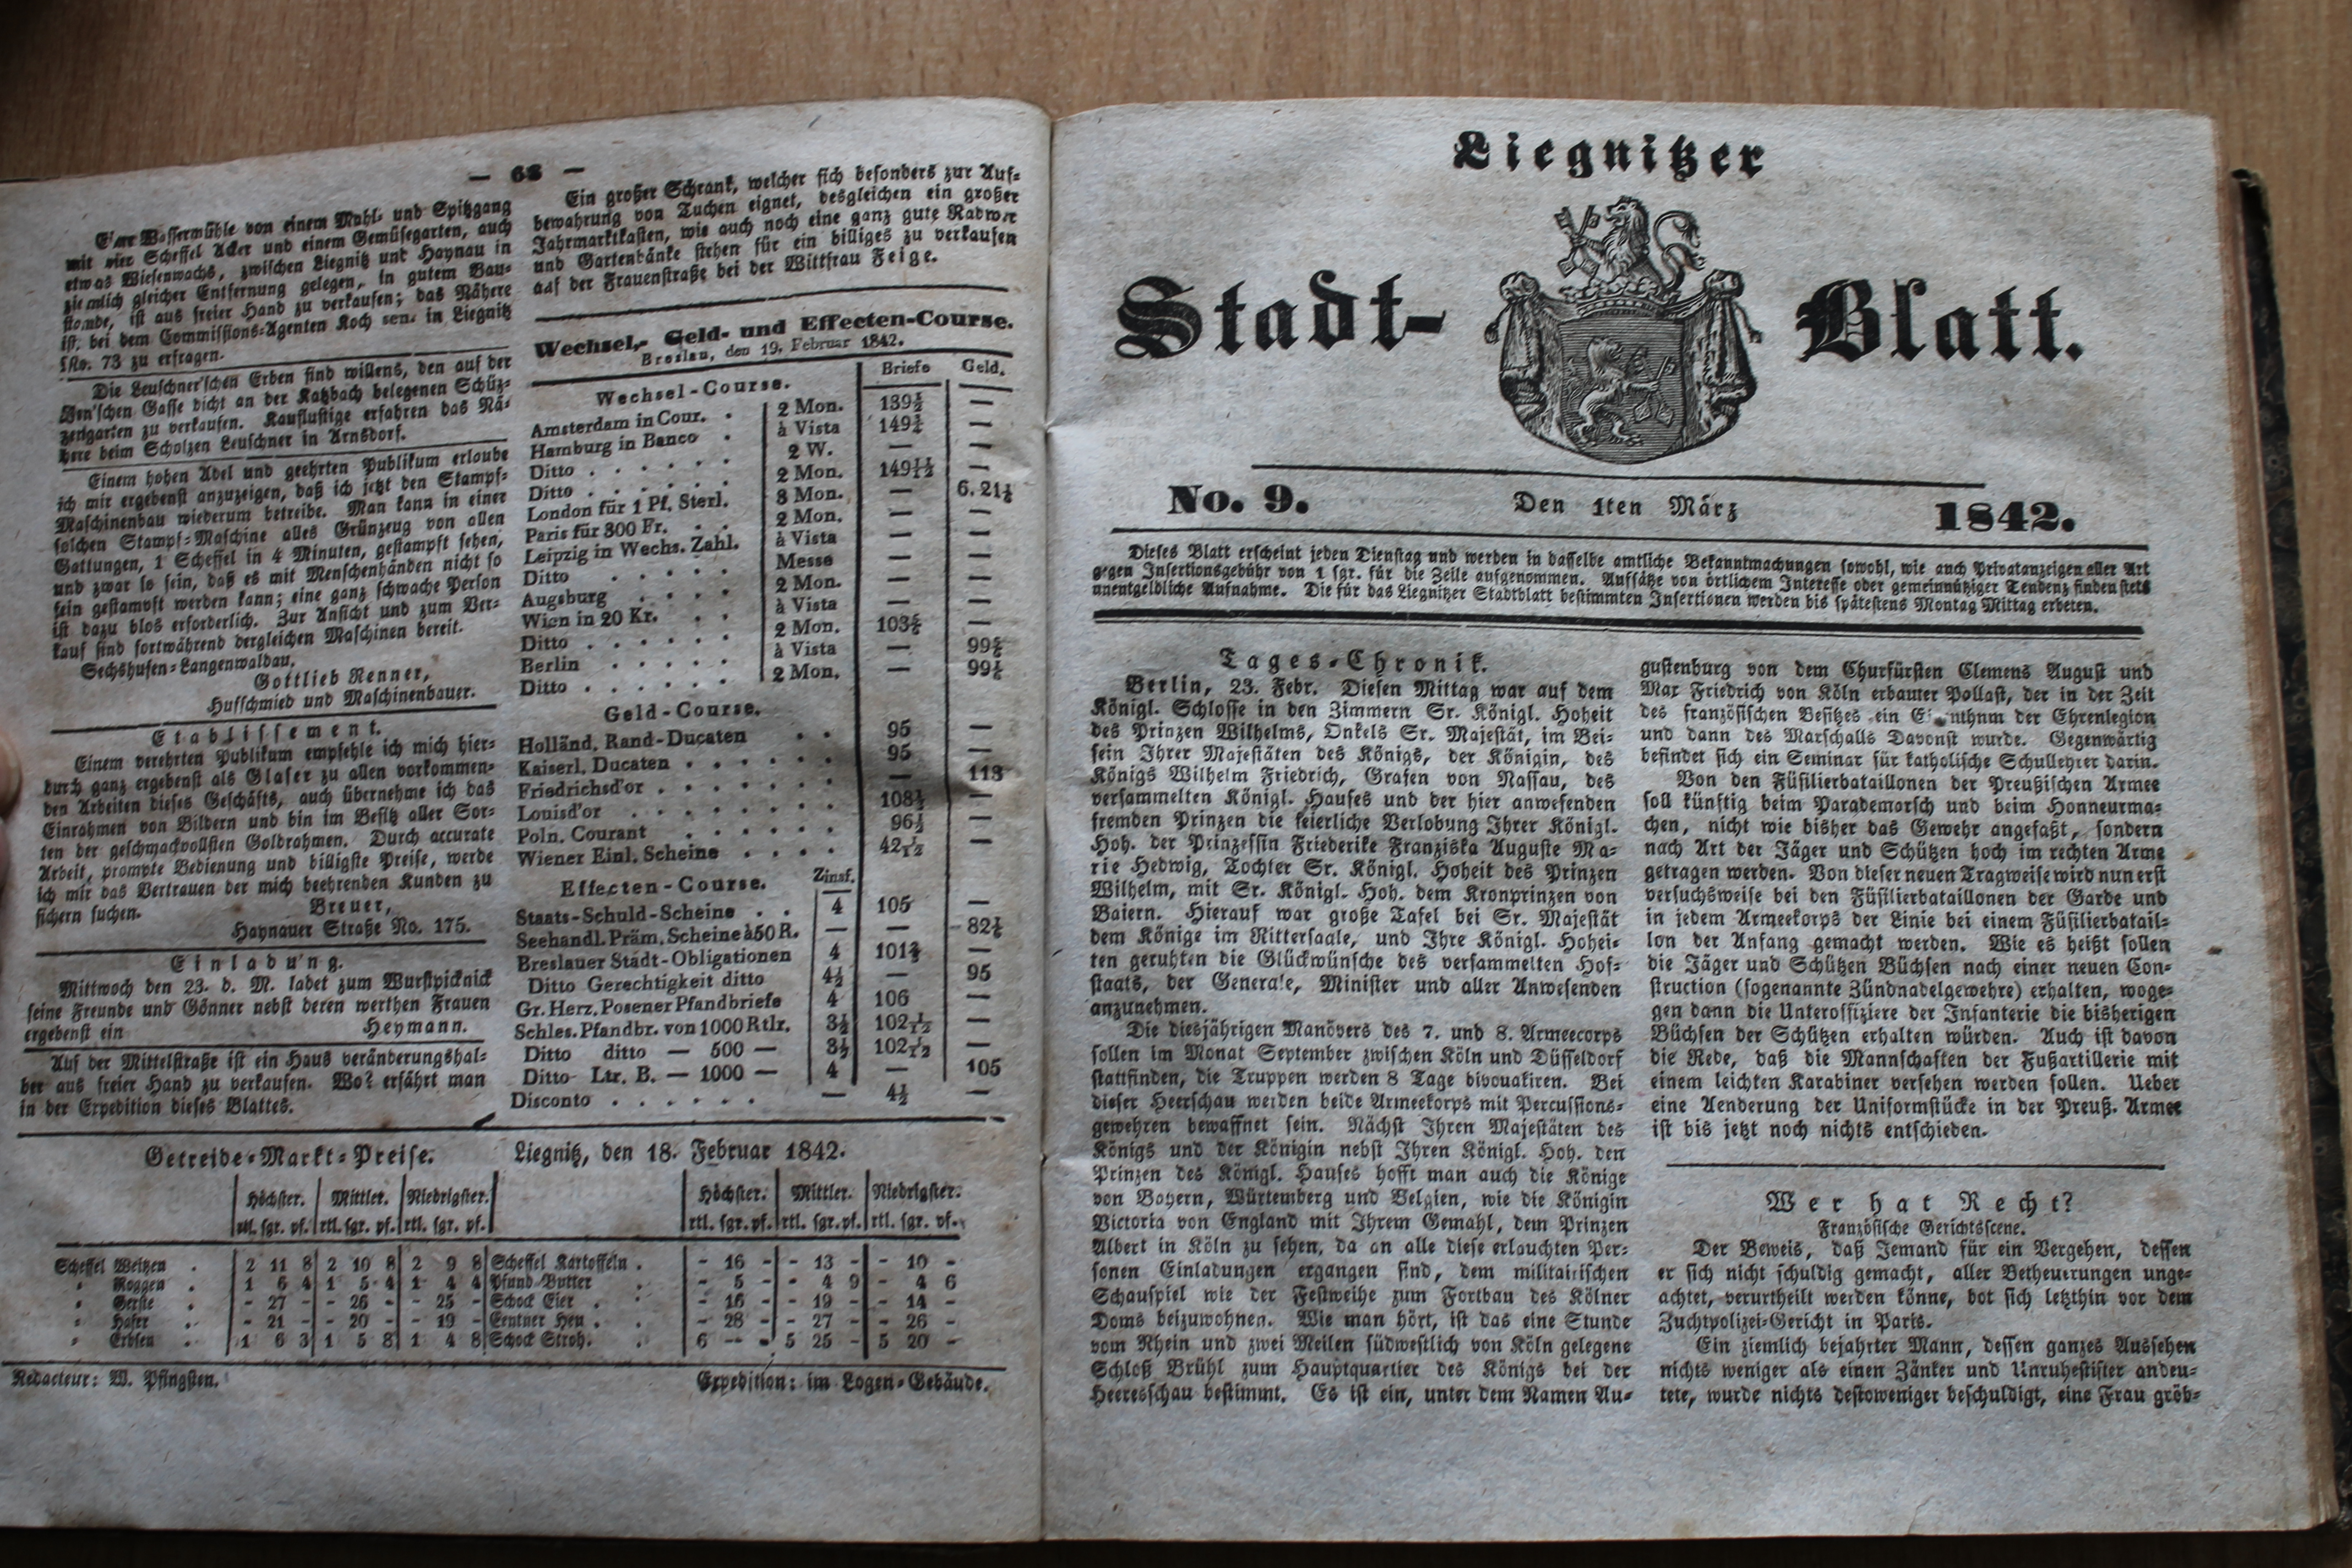 — 68 —
Eine Wassermühle von einem Mahl- und Spitzgang
mit vier Scheffel Acker und einem Gemüsegarten, auch
etwas Wiesenwachs, zwischen Liegnitz und Haynau in
ziemlich gleicher Entfernung gelegen, in gutem Bau-
stande, ist aus freier Hand zu verkaufen; das Nähere
ist bei dem Commissions-Agenten Koch sen. in Liegnitz
No. 73 zu erfragen.
Die Leuschner'schen Erben sind willens, den auf der
Gasse dicht an der Katzbach belegenen Schüz-
zengarten zu verkaufen. Kauflustige erfahren das Nä-
here beim Scholzen Leuschner in Arnsdorf.
Einem hohen Adel und geehrten Publikum erlaube
ich mir ergebenst anzuzeigen, daß ich jetzt den Stampf-
Maschinenbau wiederum betreibe. Man kann in einer
solchen Stampf-Maschine alles Grünzeug von allen
Gattungen, 1 Scheffel in 4 Minuten, gestampft sehen,
und zwar so fein, daß es mit Menschenhänden nicht so
fein gestampft werden kann; eine ganz schwache Person
ist dazu blos erforderlich. Zur Ansicht und zum Ver-
kauf sind fortwährend dergleichen Maschinen bereit.
Sechshufen-Langenwaldau.
Gottlieb Renner,
Hufschmied und Maschinenbauer.
Etablissement.
Einem verehrten Publikum empfehle ich mich hier-
durch ganz ergebenst als Glaser zu allen vorkommen-
den Arbeiten dieses Geschäfts, auch übernehme ich das
Einrahmen von Bildern und bin im Besitz aller Sor-
ten der geschmackvollsten Goldrahmen. Durch accurate
Arbeit, prompte Bedienung und billigste Preise, werde
ich mir das Vertrauen der mich beehrenden Kunden zu
sichern suchen.
Breuer,
Haynauer Straße No. 175.
Einladung.
Mittwoch den 23. d. M. ladet zum Wurstpicknick
seine Freunde und Gönner nebst deren werthen Frauen
ergebenst ein Heymann.
Auf der Mittelstraße ist ein Haus veränderungshal-
ber aus freier Hand zu verkaufen. Wo? erfährt man
in der Expedition dieses Blattes.
Ein großer Schrank, welcher sich besonders zur Auf-
bewahrung von Tuchen eignet, desgleichen ein großer
Jahrmarktkasten, wie auch noch eine ganz gute Radwer
und Gartenbänke stehen für ein billiges zu verkaufen
auf der Frauenstraße bei der Wittfrau Feige.
Wechsel-, Geld- und Effecten-Course.
Breslau, den 19. Februar 1842.
Wechsel-Course. Briefe Geld.
Amsterdam in Cour. . 2 Mon. 139½ —
Hamburg in Banco . à Vista 149¾ —
Ditto . . . . . . 2 W. — —
Ditto . . . . . . 2 Mon. 149 11/12 —
London für 1 Pf. Sterl. 3 Mon. — 6.21½
Paris für 300 Fr. . . 2 Mon. — —
Leipzig in Wechs. Zahl. à Vista — —
Ditto . . . . . Messe — —
Augsburg . . . . 2 Mon. — —
Wien in 20 Kr. . . à Vista — —
Ditto . . . . . . 2 Mon. 103⅚ —
Berlin . . . . . à Vista — 99⅚
Ditto . . . . . . 2 Mon. — 99⅙
Geld-Course.
Holländ. Rand-Ducaten . . 95 —
Kaiserl. Ducaten . . . . . . 95 —
Friedrichsd'or . . . . . . . — 113
Louisd'or . . . . . . . 108½ —
Poln. Courant . . . . . . 96½ —
Wiener Einl. Scheine . . . . 42 1/12 —
Effecten-Course. Zinsf.
Staats-Schuld-Scheine . . 4 105 —
Seehandl. Präm. Scheine à 50 R. — — 82½
Breslauer Stadt-Obligationen 4 101¾ —
Ditto Gerechtigkeit ditto 4½ — 95
Gr. Herz. Posener Pfandbriefe 4 106 —
Schles. Pfandbr. von 1000 Rtlr. 3½ 102 1/12 —
Ditto ditto — 500 — 3½ 102 1/12 —
Ditto Ltr. B. — 1000 — 4 — 105
Disconto . . . . . . — 4½ —
Getreide-Markt-Preise. Liegnitz, den 18. Februar 1842.
Höchster. Mittler. Niedrigster. Höchster. Mittler. Niedrigster.
rtl. sgr. pf. rtl. sgr. pf. rtl. sgr. pf. rtl. sgr. pf. rtl. sgr. pf. rtl. sgr. pf.
Scheffel Weitzen . 2 11 8 2 10 8 2 9 8 Scheffel Kartoffeln . - 16 - - 13 - - 10 -
" Roggen . 1 6 4 1 5 4 1 4 4 Pfund Butter . - 5 - - 4 9 - 4 6
" Gerste . - 27 - - 26 - - 25 - Schock Eier . . - 16 - - 19 - - 14 -
" Hafer . - 21 - - 20 - - 19 - Centner Heu . . - 28 - - 27 - - 26 -
" Erbsen . 1 6 3 1 5 8 1 4 8 Schock Stroh. . 6 - - 5 25 - 5 20 -
Redacteur: W. Pfingsten. Expedition: im Logen-Gebäude.
Liegnitzer
Stadt-Blatt.
No. 9. Den 1ten März 1842.
Dieses Blatt erscheint jeden Dienstag und werden in dasselbe amtliche Bekanntmachungen sowohl, wie auch Privatanzeigen aller Art
gegen Insertionsgebühr von 1 sgr. für die Zeile aufgenommen. Aufsätze von örtlichem Interesse oder gemeinnütziger Tendenz finden stets
unentgeldliche Aufnahme. Die für das Liegnitzer Stadtblatt bestimmten Insertionen werden bis spätestens Montag Mittag erbeten.
Tages-Chronik.
Berlin, 23. Febr. Diesen Mittag war auf dem
Königl. Schlosse in den Zimmern Sr. Königl. Hoheit
des Prinzen Wilhelms, Onkels Sr. Majestät, im Bei-
sein Ihrer Majestäten des Königs, der Königin, des
Königs Wilhelm Friedrich, Grafen von Nassau, des
versammelten Königl. Hauses und der hier anwesenden
fremden Prinzen die feierliche Verlobung Ihrer Königl.
Hoh. der Prinzessin Friederike Franziska Auguste Ma-
rie Hedwig, Tochter Sr. Königl. Hoheit des Prinzen
Wilhelm, mit Sr. Königl. Hoh. dem Kronprinzen von
Baiern. Hierauf war große Tafel bei Sr. Majestät
dem Könige im Rittersaale, und Ihre Königl. Hohei-
ten geruhten die Glückwünsche des versammelten Hof-
staats, der Generale, Minister und aller Anwesenden
anzunehmen.
Die diesjährigen Manövers des 7. und 8. Armeecorps
sollen im Monat September zwischen Köln und Düsseldorf
stattfinden, die Truppen werden 8 Tage bivouakiren. Bei
dieser Heerschau werden beide Armeekorps mit Percussions-
gewehren bewaffnet sein. Nächst Ihren Majestäten des
Königs und der Königin nebst Ihren Königl. Hoh. den
Prinzen des Königl. Hauses hofft man auch die Könige
von Bayern, Würtemberg und Belgien, wie die Königin
Victoria von England mit Ihrem Gemahl, dem Prinzen
Albert in Köln zu sehen, da an alle diese erlauchten Per-
sonen Einladungen ergangen sind, dem militairischen
Schauspiel wie der Festweihe zum Fortbau des Kölner
Doms beizuwohnen. Wie man hört, ist das eine Stunde
vom Rhein und zwei Meilen südwestlich von Köln gelegene
Schloß Brühl zum Hauptquartier des Königs bei der
Heeresschau bestimmt. Es ist ein, unter dem Namen Au-
gustenburg von dem Churfürsten Clemens August und
Max Friedrich von Köln erbauter Pallast, der in der Zeit
des französischen Besitzes ein der Ehrenlegion
und dann des Marschalls Davoust wurde. Gegenwärtig
befindet sich ein Seminar für katholische Schullehrer darin.
Von den Füsilierbataillonen der Preußischen Armee
soll künftig beim Parademarsch und beim Honneurma-
chen, nicht wie bisher das Gewehr angefaßt, sondern
nach Art der Jäger und Schützen hoch im rechten Arme
getragen werden. Von dieser neuen Tragweise wird nun erst
versuchsweise bei den Füsilierbataillonen der Garde und
in jedem Armeekorps der Linie bei einem Füsilierbatail-
lon der Anfang gemacht werden. Wie es heißt sollen
die Jäger und Schützen Büchsen nach einer neuen Con-
struction (sogenannte Zündnadelgewehre) erhalten, woge-
gen dann die Unteroffiziere der Infanterie die bisherigen
Büchsen der Schützen erhalten würden. Auch ist davon
die Rede, daß die Mannschaften der Fußartillerie mit
einem leichten Karabiner versehen werden sollen. Ueber
eine Aenderung der Uniformstücke in der Preuß. Armee
ist bis jetzt noch nichts entschieden.
Wer hat Recht?
Französische Gerichtsscene.
Der Beweis, daß Jemand für ein Vergehen, dessen
er sich nicht schuldig gemacht, aller Betheuerungen unge-
achtet, verurtheilt werden könne, bot sich letzthin vor dem
Zuchtpolizei-Gericht in Paris.
Ein ziemlich bejahrter Mann, dessen ganzes Aussehen
nichts weniger als einen Zänker und Unruhestifter andeu-
tete, wurde nichts destoweniger beschuldigt, eine Frau gröb-